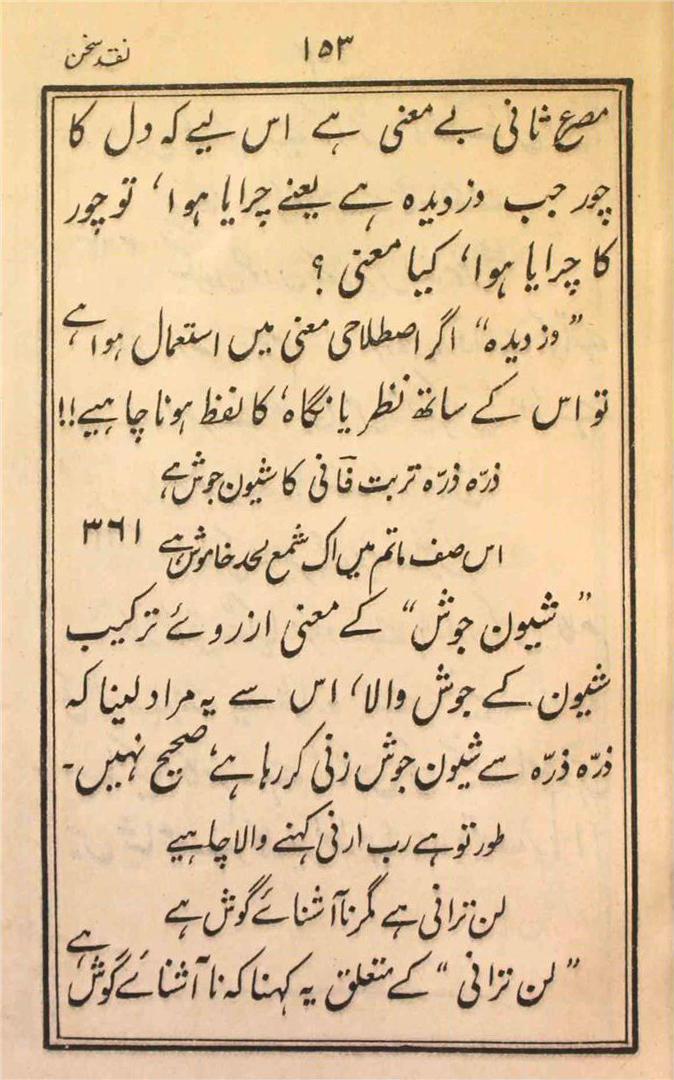 نقد سخن ۱۵۳
مصرع ثانی بے معنی ہے اس لیے کہ دل کا
چور جب دزدیدہ ہے یعنے چرایا ہوا، تو چور
کا چرایا ہوا، کیا معنی ؟
”دزدیدہ“ اگر اصطلاحی معنی میں استعمال ہوا ہے
تو اس کے ساتھ نظر یا نگاہ، کا لفظ ہونا چاہیے!!
ذرّہ ذرّہ تربت فانی کا شیون جوش ہے
اس صف ماتم میں اک شمع لحد خاموش ہے ۳۶۱
”شیون جوش“ کے معنی ازروئے ترکیب
شیون کے جوش والا، اس سے یہ مراد لینا کہ
ذرّہ ذرّہ سے شیون جوش زنی کر رہا ہے، صحیح نہیں۔
طور تو ہے رب ارنی کہنے والا چاہیے
لن ترانی ہے مگر نا آشنائے گوش ہے
”لن ترانی“ کے متعلق یہ کہنا کہ نا آشنائے گوش ہے